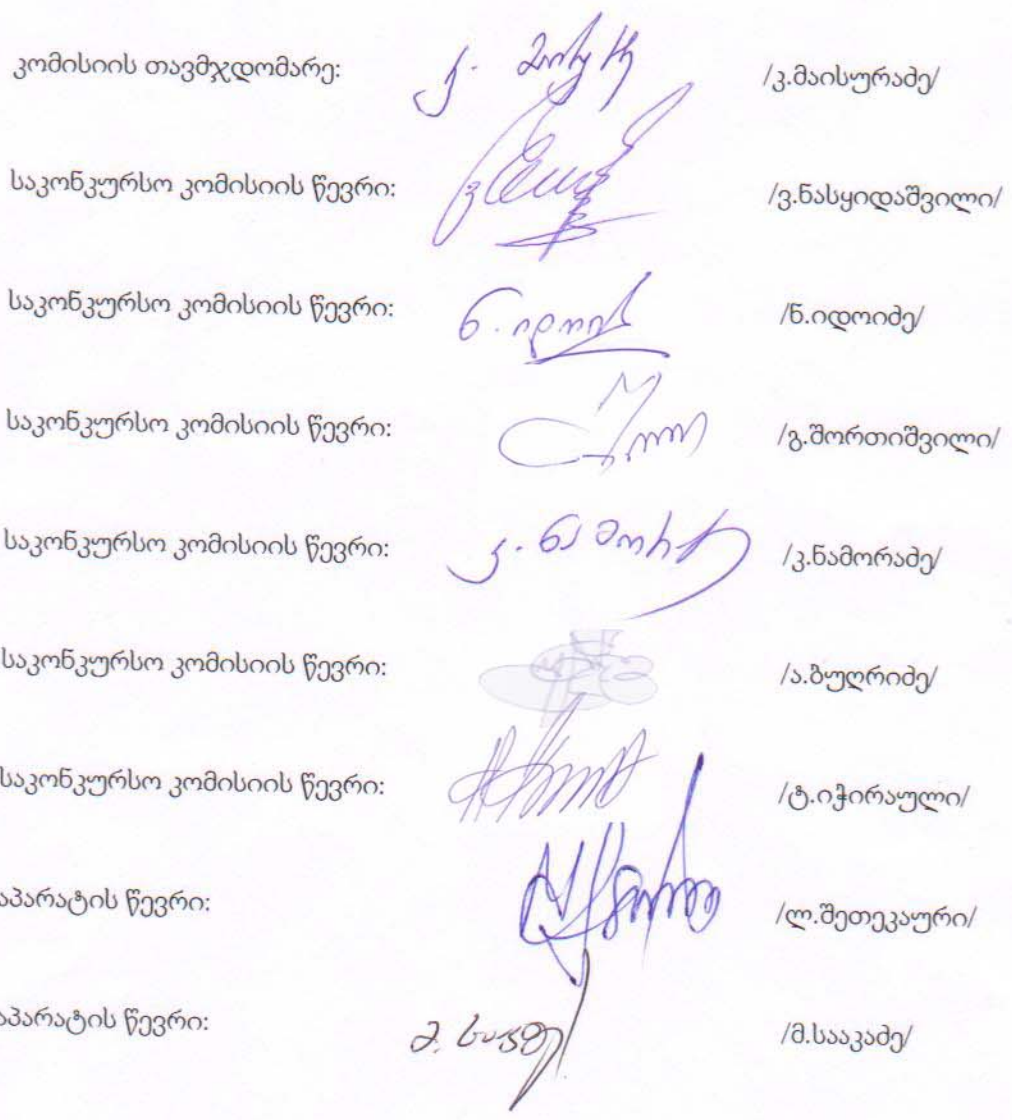 კომისიის თავმჯდომარე: /კ.მაისურაძე/
საკონკურსო კომისიის წევრი: /ვ.ნასყიდაშვილი/
საკონკურსო კომისიის წევრი: ნ. იდოიძ /ნ.იდოიძე/
საკონკურსო კომისიის წევრი: /გ.შორთიშვილი/
საკონკურსო კომისიის წევრი: კ. ნამორაძე /კ.ნამორაძე/
საკონკურსო კომისიის წევრი: /ა.ზუღრიძე/
საკონკურსო კომისიის წევრი: /ტ.იჭირაული/
აპარატის წევრი: /ლ.შეთეკაური/
აპარატის წევრი: /მ.სააკაძე/